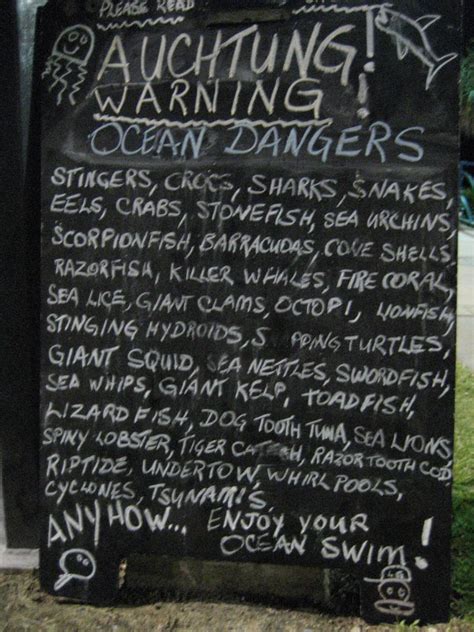 PLEASE READ
AUCHTUNG!
WARNING
OCEAN DANGERS
STINGERS, CROCS, SHARKS, SNAKES,
EELS, CRABS, STONEFISH, SEA URCHINS,
SCORPIONFISH, BARRACUDAS, CONE SHELLS
RAZORFISH, KILLER WHALES, FIRE CORAL,
SEA LICE, GIANT CLAMS, OCTOPI, LIONFISH,
STINGING HYDROIDS, S PPING TURTLES,
GIANT SQUID, SEA NETTLES, SWORDFISH,
SEA WHIPS, GIANT KELP, TOADFISH,
LIZARD FISH, DOG TOOTH TUNA, SEA LIONS
SPINY LOBSTER, TIGER RAZORTOOTH COD,
RIPTIDE, UNDERTOW, WHIRLPOOLS,
CYCLONES, TSUNAMIS.
ANYHOW... ENJOY YOUR
OCEAN SWIM!